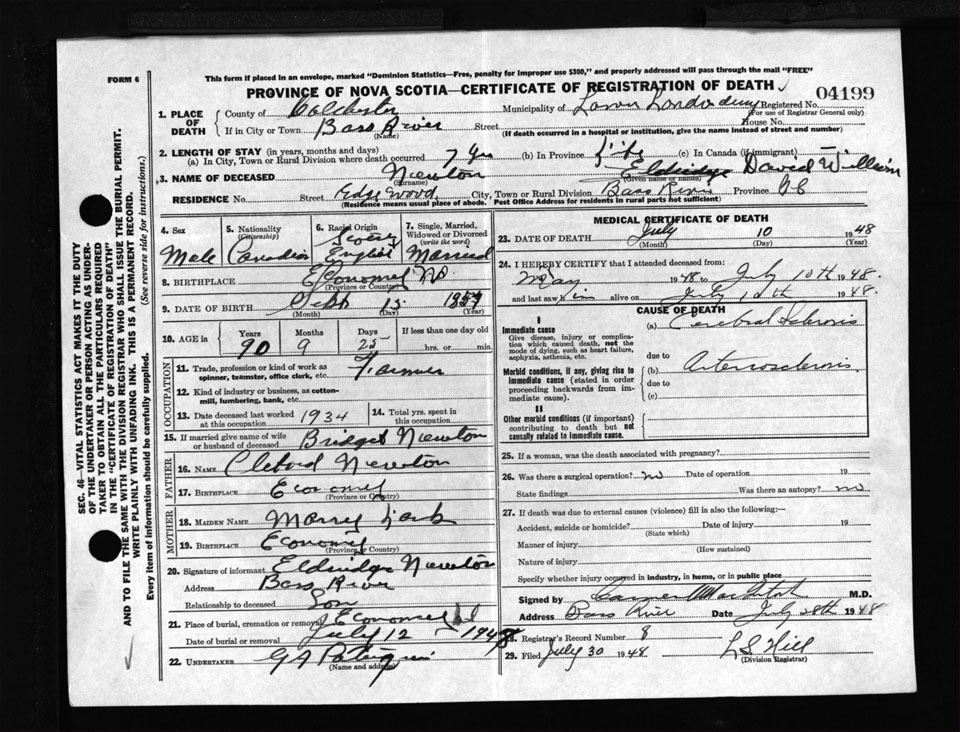 FORM 6
This form if placed in an envelope, marked "Dominion Statistics—Free, penalty for improper use $300," and properly addressed will pass through the mail "FREE"
PROVINCE OF NOVA SCOTIA—CERTIFICATE OF REGISTRATION OF DEATH
04199
1. PLACE OF DEATH
County of Colchester Municipality of Lower Londonderry Registered No.
(For use of Registrar General only)
If in City or Town Bass River Street House No.
(Name) (If death occurred in a hospital or institution, give the name instead of street and number)
2. LENGTH OF STAY (in years, months and days)
(a) In City, Town or Rural Division where death occurred 7 Yrs (b) In Province Life (c) In Canada (if immigrant)
3. NAME OF DECEASED Newton Eldridge David William
(Surname) (Given name or names)
RESIDENCE No. Street Edgewood City, Town or Rural Division Bass River Province
(Residence means usual place of abode. Post Office Address for residents in rural parts not sufficient)
4. Sex Male
5. Nationality (Citizenship) Canadian
6. Racial Origin English
7. Single, Married, Widowed or Divorced (write the word) Married
8. BIRTHPLACE Economy NS
(Province or Country)
9. DATE OF BIRTH 15 1857
(Month) (Day) (Year)
10. AGE in Years 90 Months 9 Days 25 If less than one day hrs. or min.
OCCUPATION
11. Trade, profession or kind of work as spinner, teamster, office clerk, etc. Farmer
12. Kind of industry or business, as cotton-mill, lumbering, bank, etc.
13. Date deceased last worked at this occupation 1934
14. Total yrs. spent in this occupation
15. If married give name of wife or husband of deceased Bridget Newton
FATHER
16. NAME Newton
17. BIRTHPLACE Economy
(Province or Country)
MOTHER
18. MAIDEN NAME
19. BIRTHPLACE Economy
(Province or Country)
20. Signature of informant Eldridge Newton
Address Bass River
Relationship to deceased Son
21. Place of burial, cremation or removal Economy
Date of burial or removal July 12 - 1948
22. UNDERTAKER G A
(Name and address)
MEDICAL CERTIFICATE OF DEATH
23. DATE OF DEATH July 10 1948
(Month) (Day) (Year)
24. I HEREBY CERTIFY that I attended deceased from:
May 1948 to July 10th 1948.
and last saw him alive on July 10th 1948.
CAUSE OF DEATH
I
Immediate cause
Give disease, injury or complication which caused death, not the mode of dying, such as heart failure, asphyxia, asthenia, etc.
(a) Cerebral Sclerosis
due to
Morbid conditions, if any, giving rise to immediate cause (stated in order proceeding backwards from immediate cause).
(b) Arteriosclerosis
due to
(c)
II
Other morbid conditions (if important) contributing to death but not causally related to immediate cause.
25. If a woman, was the death associated with pregnancy?
26. Was there a surgical operation? no Date of operation 19
State findings Was there an autopsy? no
27. If death was due to external causes (violence) fill in also the following:—
Accident, suicide or homicide? Date of injury 19
(State which)
Manner of injury
(How sustained)
Nature of injury
Specify whether injury occurred in industry, in home, or in public place
Signed by M.D.
Address Bass River Date July 28th 1948
28. Registrar's Record Number 8
29. Filed July 30 1948 L S Hill
(Division Registrar)
SEC. 46—VITAL STATISTICS ACT MAKES IT THE DUTY
OF THE UNDERTAKER OR PERSON ACTING AS UNDERTAKER
TO OBTAIN ALL THE PARTICULARS REQUIRED
IN THE "CERTIFICATE OF REGISTRATION OF DEATH"
AND TO FILE THE SAME WITH THE DIVISION REGISTRAR WHO SHALL ISSUE THE BURIAL PERMIT.
WRITE PLAINLY WITH UNFADING INK. THIS IS A PERMANENT RECORD.
Every item of information should be carefully supplied. (See reverse side for instructions.)